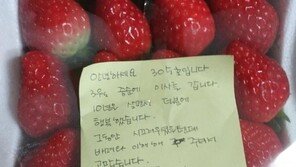 안녕하세요 305호입니다
3월 중순에 이사를 갑니다
10년을 살면서 덕분에
행복 했습니다.
그동안 시끄러우셨을텐데
배려와 이해해 주셔서
고맙습니다.